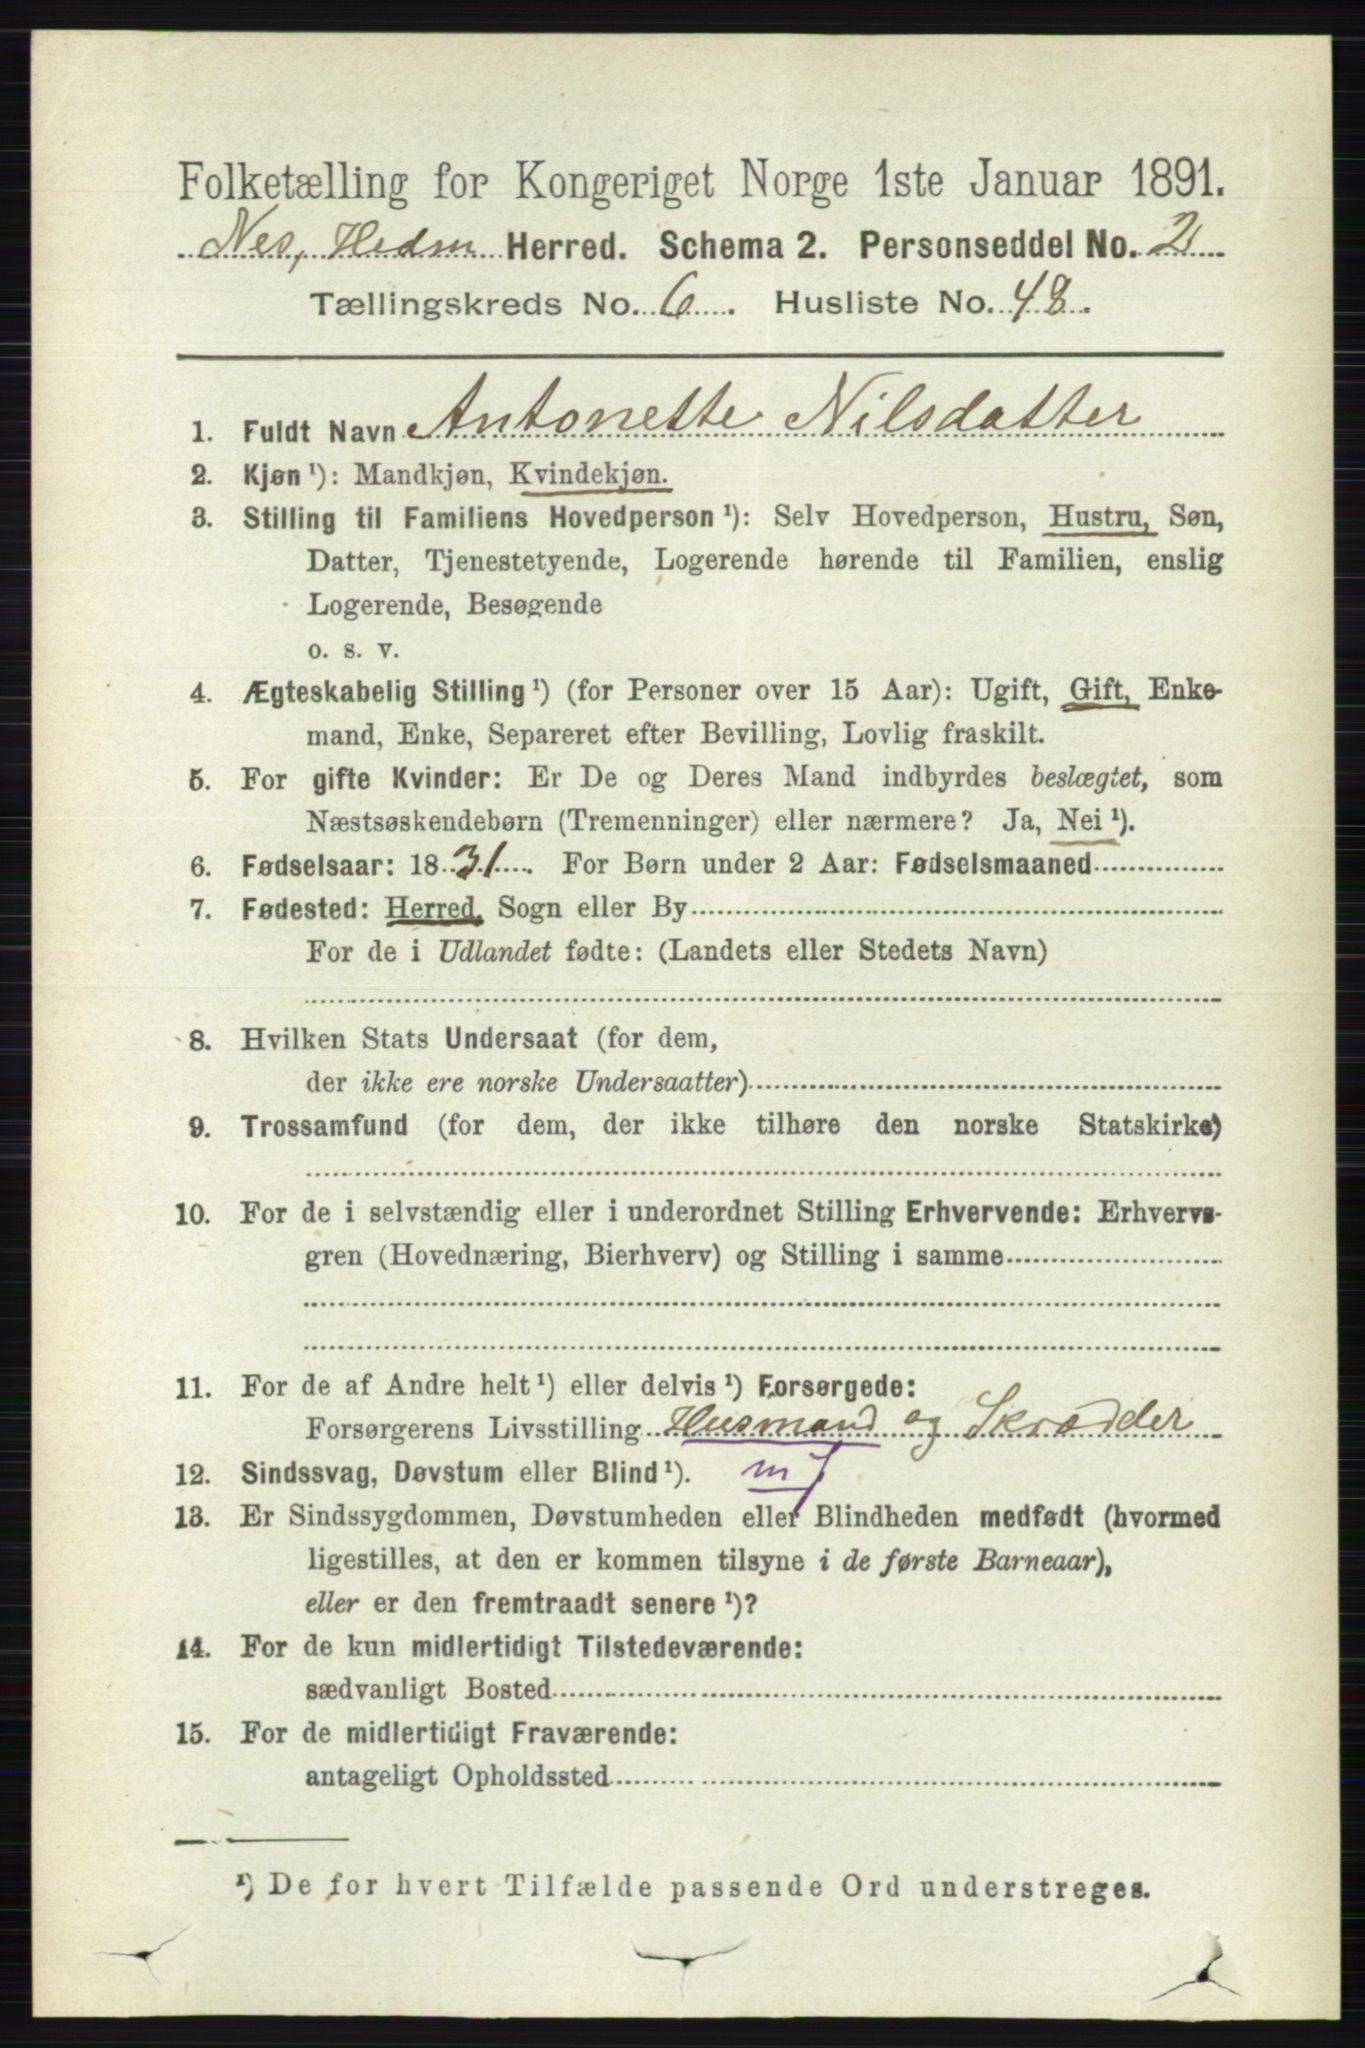 Folketælling for Kongeriget Norge 1ste Januar 1891.
Nes, Hedm Herred. Schema 2. Personseddel No. 2
Tællingskreds No. 6. Husliste No. 48.
1. Fuldt Navn Antonette Nilsdatter
2. Kjøn ¹): Mandkjøn, Kvindekjøn.
3. Stilling til Familiens Hovedperson ¹): Selv Hovedperson, Hustru, Søn,
Datter, Tjenestetyende, Logerende hørende til Familien, enslig
Logerende, Besøgende
o. s. v.
4. Ægteskabelig Stilling ¹) (for Personer over 15 Aar): Ugift, Gift, Enke-
mand, Enke, Separeret efter Bevilling, Lovlig fraskilt.
5. For gifte Kvinder: Er De og Deres Mand indbyrdes beslægtet, som
Næstsøskendebørn (Tremenninger) eller nærmere? Ja, Nei ¹).
6. Fødselsaar: 1831. For Børn under 2 Aar: Fødselsmaaned
7. Fødested: Herred, Sogn eller By
For de i Udlandet fødte: (Landets eller Stedets Navn)
8. Hvilken Stats Undersaat (for dem,
der ikke ere norske Undersaatter)
9. Trossamfund (for dem, der ikke tilhøre den norske Statskirke)
10. For de i selvstændig eller i underordnet Stilling Erhvervende: Erhvervs-
gren (Hovednæring, Bierhverv) og Stilling i samme
11. For de af Andre helt ¹) eller delvis ¹) Forsørgede:
Forsørgerens Livsstilling Husmand og Skrædder
12. Sindssvag, Døvstum eller Blind ¹). mj
13. Er Sindssygdommen, Døvstumheden eller Blindheden medfødt (hvormed
ligestilles, at den er kommen tilsyne i de første Barneaar),
eller er den fremtraadt senere ¹)?
14. For de kun midlertidigt Tilstedeværende:
sædvanligt Bosted
15. For de midlertidigt Fraværende:
antageligt Opholdssted
¹) De for hvert Tilfælde passende Ord understreges.